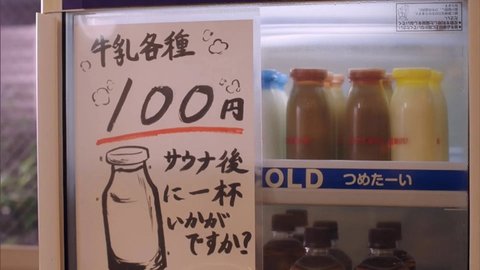 牛乳各種
100円
サウナ後
に一杯
いかがが
ですか?
OLD つめたーい